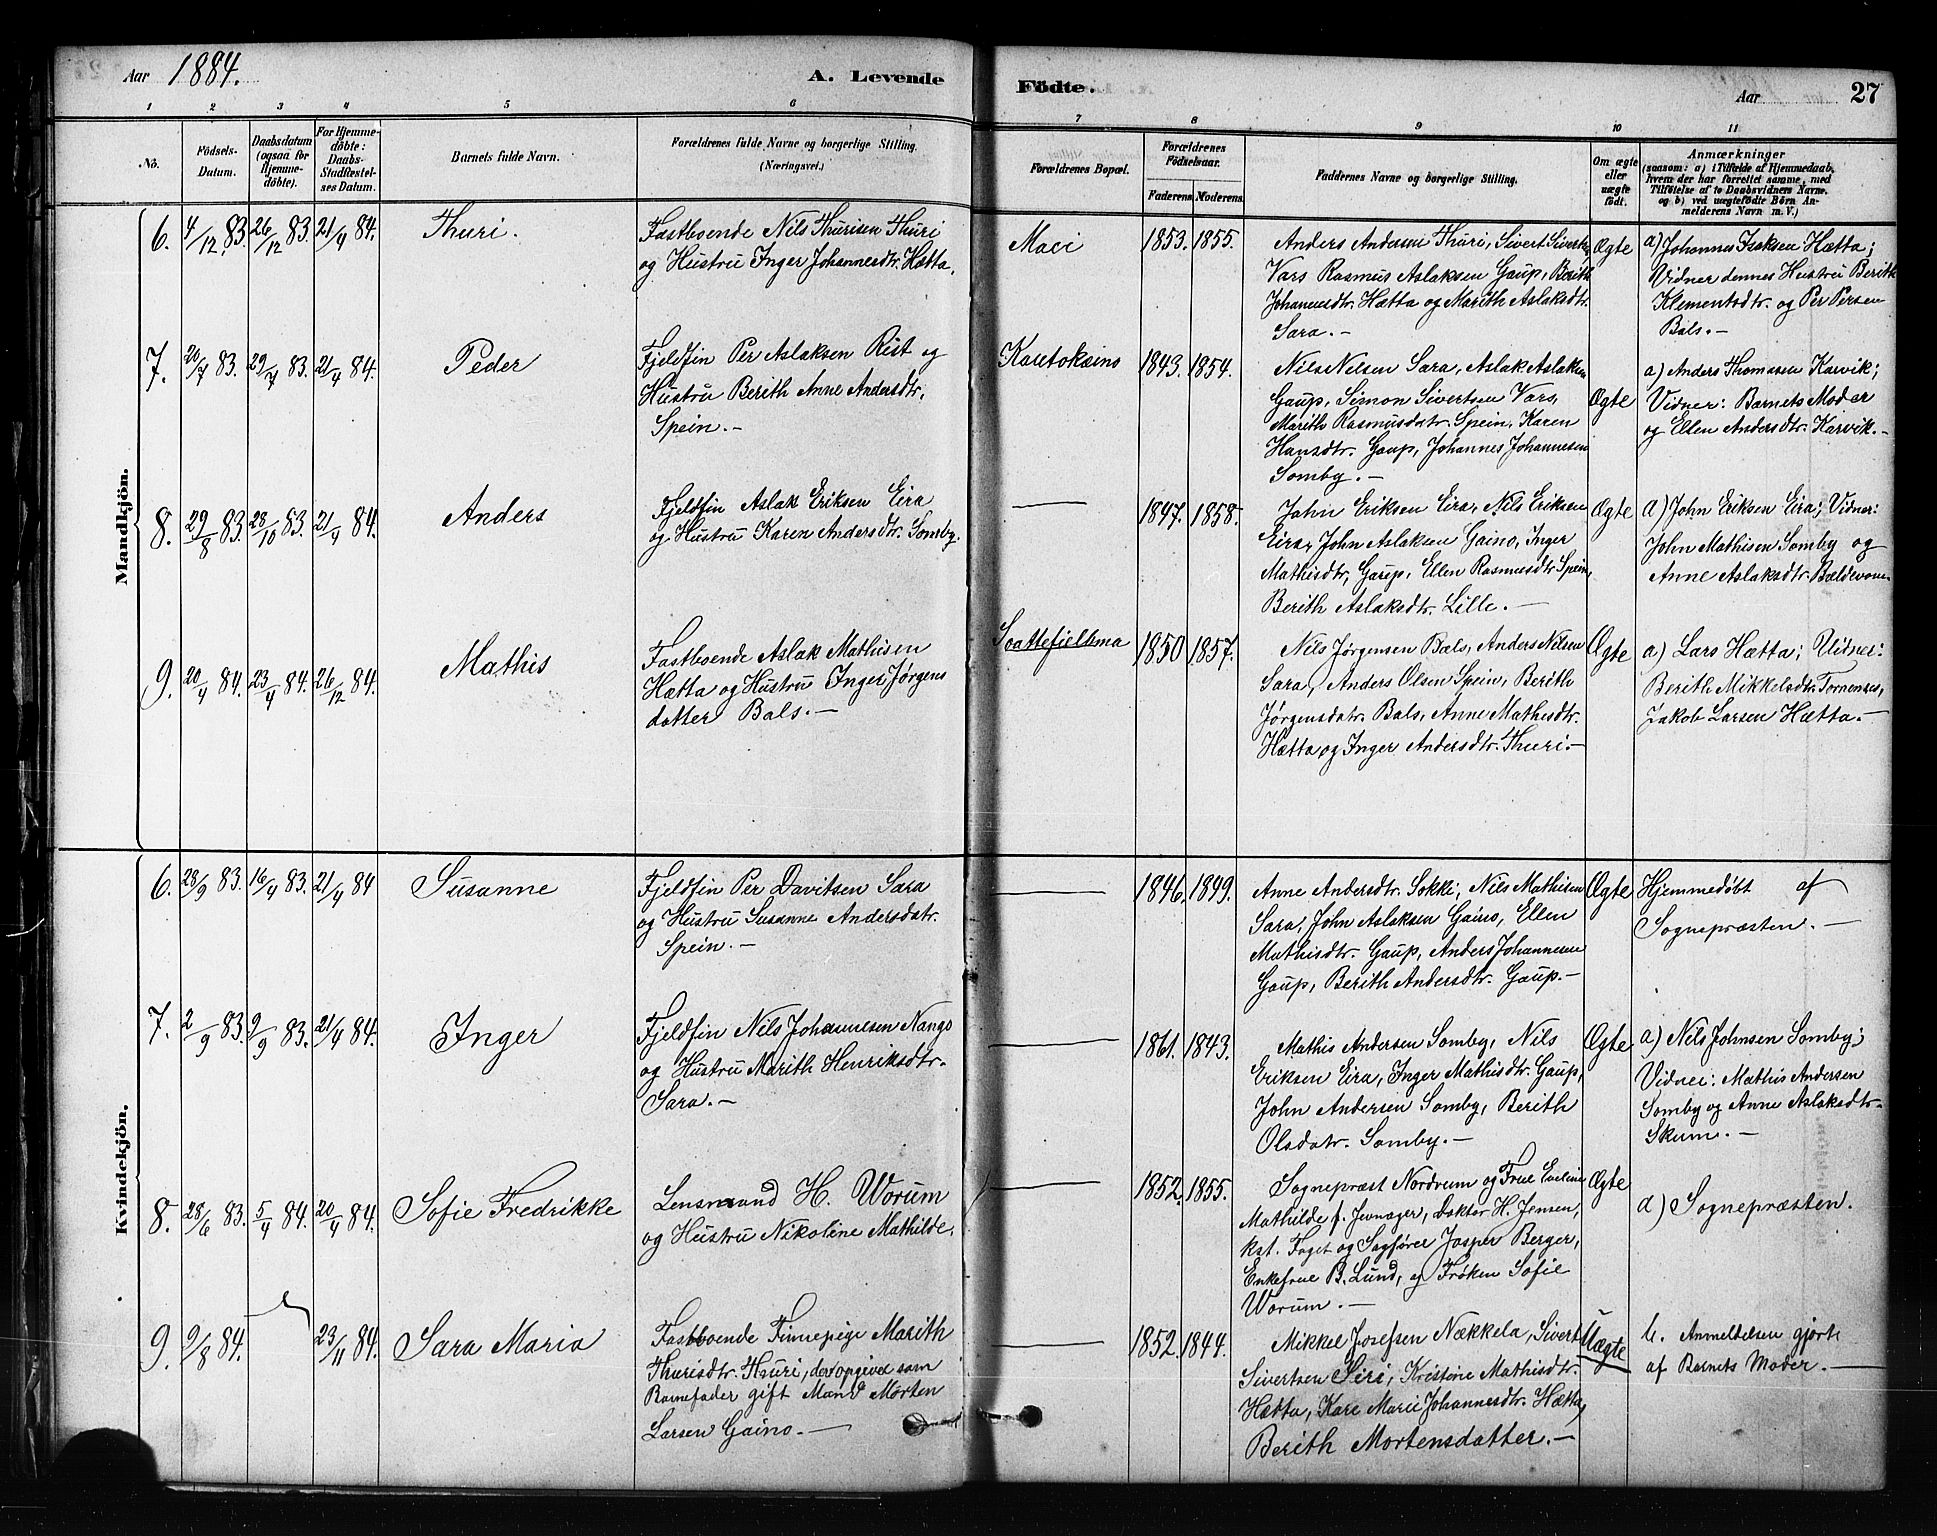 Aar 1884.
A. Levende
Födte.
Aar
27
1 2 3 4 5 6 7 8 9 10 11
No.
Födsels-Datum.
Daabsdatum (ogsaa for Hjemme-döbte).
For Hjemme-döbte: Daabs-Stadfæstel-ses Datum.
Barnets fulde Navn.
Forældrenes fulde Navne og borgerlige Stilling.
(Næringsvei.)
Forældrenes Bopæl.
Forældrenes Födselsaar.
Faderens. Moderens.
Faddernes Navne og borgerlige Stilling.
Om ægte eller uægte födt.
Anmærkninger
(saasom: a) i Tilfælde af Hjemmedaab, hvem der har forrettet samme, med Tilföielse af to Daabsvidners Navne. og b) ved uægtefödte Börn Anmelderens Navn m. V.)
Mandkjön.
6. 4/12 83. 26/12 83. 21/4 84. Thuri.
Fastboende Nils Thurisen Thuri
og Hustru Inger Johannesdtr. Hætta.
Maci 1853. 1855.
Anders Andersen Thuri, Sivert Siverts.
Vars Rasmus Aslaksen Gaup, Berith
Johannesdtr. Hætta og Marith Aslaksdtr.
Sara. –
Ægte
a) Johannes Isaksen Hætta;
Vidner dennes Hustru Berith
Klementsdtr. og Per Persen
Bals. –
7. 20/7 83. 29/7 83. 21/4 84. Peder
Fjeldfin Per Aslaksen Rist og
Hustru Berith Anne Andersdtr.
Spein. –
Kautokeino 1843. 1854.
Nils Nilsen Sara, Aslak Aslaksen
Gaup, Simon Sivertsen Vars,
Marith Rasmusdatr. Spein, Karen
Hansdtr. Gaup, Johannes Johannesen
Somby. –
Ægte
a) Anders Thomasen Karvik;
Vidner: Barnets Moder
og Ellen Andersdtr. Karvik. –
8. 29/8 83. 28/10 83. 21/4 84. Anders
Fjeldfin Aslak Eriksen Eira
og Hustru Karen Andersdtr. Somby.
— 1847. 1858.
John Eriksen Eira, Nils Eriksen
Eira, John Aslaksen Gaino, Inger
Mathisdtr. Gaup, Ellen Rasmusdtr. Spein,
Berith Aslaksdtr. Lille. –
Ægte
a) John Eriksen Eira; Vidner:
John Mathisen Somby og
Anne Aslaksdtr.
9. 20/4 84. 23/4 84. 26/12 84. Mathis
Fastboende Aslak Mathisen
Hætta og Hustru Inger Jørgens
datter Bals. –
1850 1857.
Nils Jørgensen Bals, Anders Nilsen
Sara, Anders Olsen Spein, Berith
Jørgensdatr. Bals, Anne Mathisdtr.
Hætta og Inger Andersdtr. Thuri –
Ægte
a) Lars Hætta; Vidner:
Berith Mikkelsdtr. Tornenses,
Jakob Larsen Hætta. –
Kvindekjön.
6. 28/9 83. 16/4 83. 21/4 84 Susanne
Fjeldfin Per Davitsen Sara
og Hustru Susanne Andersdatr.
Spein. –
— 1846. 1849.
Anne Andersdtr. Sokki, Nils Mathisen
Sara, John Aslaksen Gaino, Ellen
Mathisdtr. Gaup, Anders Johannesen
Gaup, Berith Andersdtr. Gaup. –
Ægte
Hjemmedøbt af
Sognepræsten. –
7. 2/9 83. 9/9 83. 21/4 84. Inger
Fjeldfin Nils Johannesen Nango
og Hustru Marith Henriksdtr.
Sara. –
— 1861. 1843.
Mathis Andersen Somby, Nils
Eriksen Eira, Inger Mathisdtr. Gaup,
John Andersen Somby, Berith
Olsdatr. Somby. –
Ægte
a) Nils Johnsen Somby;
Vidner: Mathis Andersen
Somby og Anne Aslaksdtr.
Skum. –
8. 28/6 83. 5/4 84. 20/4 84. Sofie Fredrikke
Lensmand H. Worum
og Hustru Nikoline Mathilde.
— 1852. 1855.
Sognepræst Nordrum og Frue Eveline
Mathilde f. Jevnager, Doktor H. Jensen,
kst. Foget og Sagfører Jasper Berger,
Enkefrue B. Lund, og Frøken Sofie
Worum. –
Ægte
a) Sognepræsten.
9. 9/8 84. 23/11 84. Sara Maria
Fastboende Finnepige Marith
Thurisdtr. Thuri, der opgiver som
Barnefader gift Mand Morten
Larsen Gaino. –
— 1852. 1844.
Mikkel Josefsen Nækkela, Sivert
Sivertsen Siri, Kristine Mathisdtr.
Hætta, Kare Marie Johannesdtr. Hætta,
Berith Mortensdatter. –
Uægte
b. Anmeldelsen gjort
af Barnets Moder. –